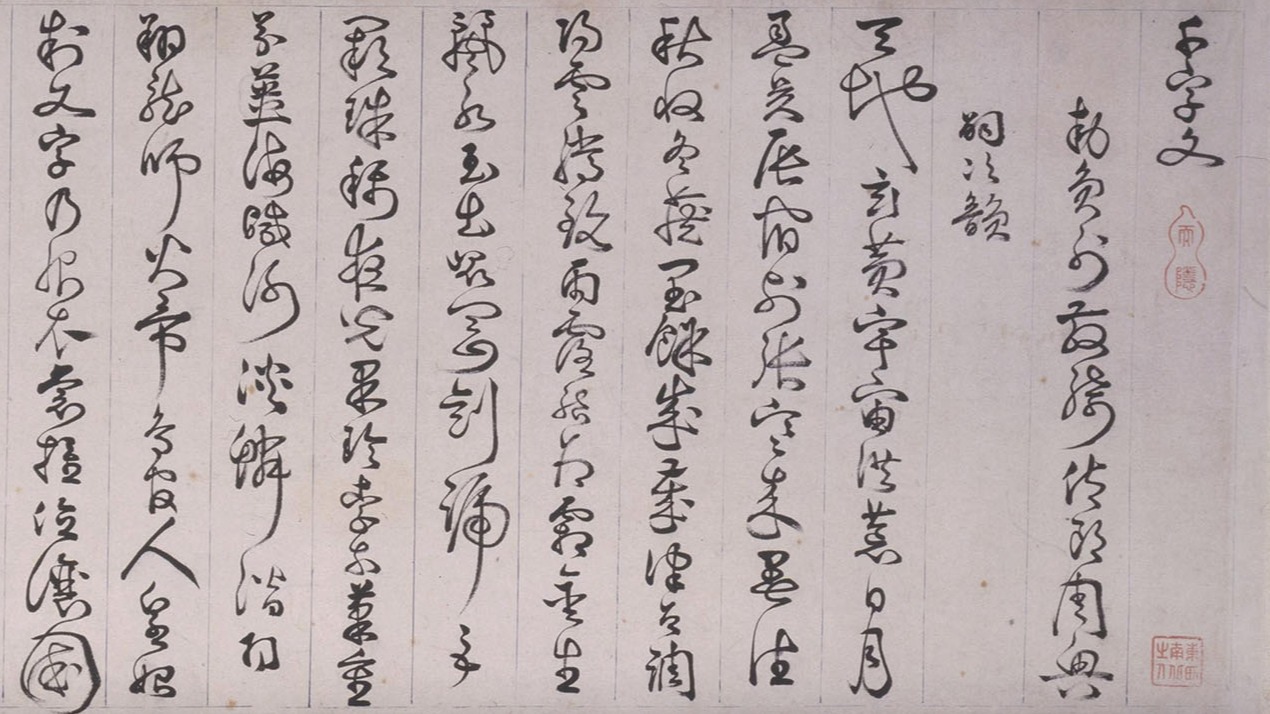 千字文
勅員外散騎侍郎周興
嗣次韻
天地玄黃宇宙洪荒日月
盈昃辰宿列張寒來暑往
秋收冬藏閏餘成歲律呂調
陽雲騰致雨露結為霜金生
麗水玉出崑岡劍號巨
闕珠稱夜光果珍李柰菜重
芥薑海醎河淡鱗潛羽
翔龍師火帝鳥官人皇始
制文字乃服衣裳推位讓國
東西南北之人